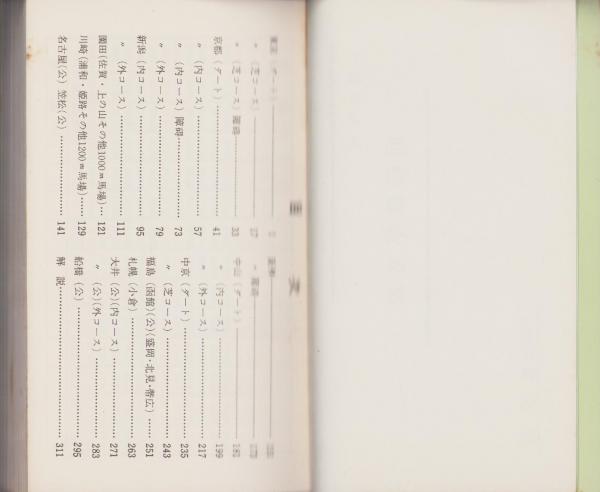 目次
東京(ダート)
〃(芝コース)
〃(芝コース)障碍 33
京都(ダート) 41
〃(内コース) 57
〃(内コース)障碍 73
〃(外コース) 79
新潟(内コース) 95
〃(外コース) 111
園田(佐賀・上の山その他1000m馬場) 121
川崎(浦和・姫路その他1200m馬場) 129
名古屋(公) 笠松(公) 141
〃障碍
中山(ダート)
〃(内コース) 199
〃(外コース) 217
中京(ダート) 235
〃(芝コース) 243
福島(函館)(公)(盛岡・北見・帯広) 251
札幌(小倉) 263
大井(公)(内コース) 271
〃(公)(外コース) 283
船橋(公) 295
解説 311